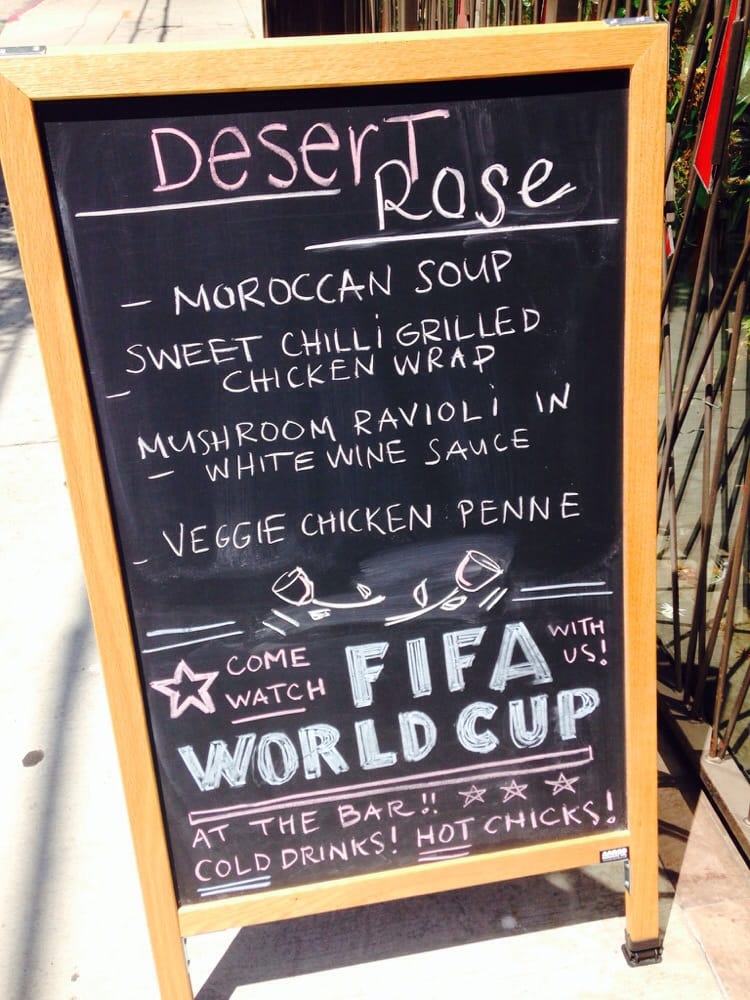 Desert
Rose
- MOROCCAN SOUP
SWEET CHILLI GRILLED
- CHICKEN WRAP
MUSHROOM RAVIOLI IN
- WHITE WINE SAUCE
- VEGGIE CHICKEN PENNE
COME WATCH FIFA WITH US!
WORLD CUP
AT THE BAR!!
COLD DRINKS! HOT CHICKS!